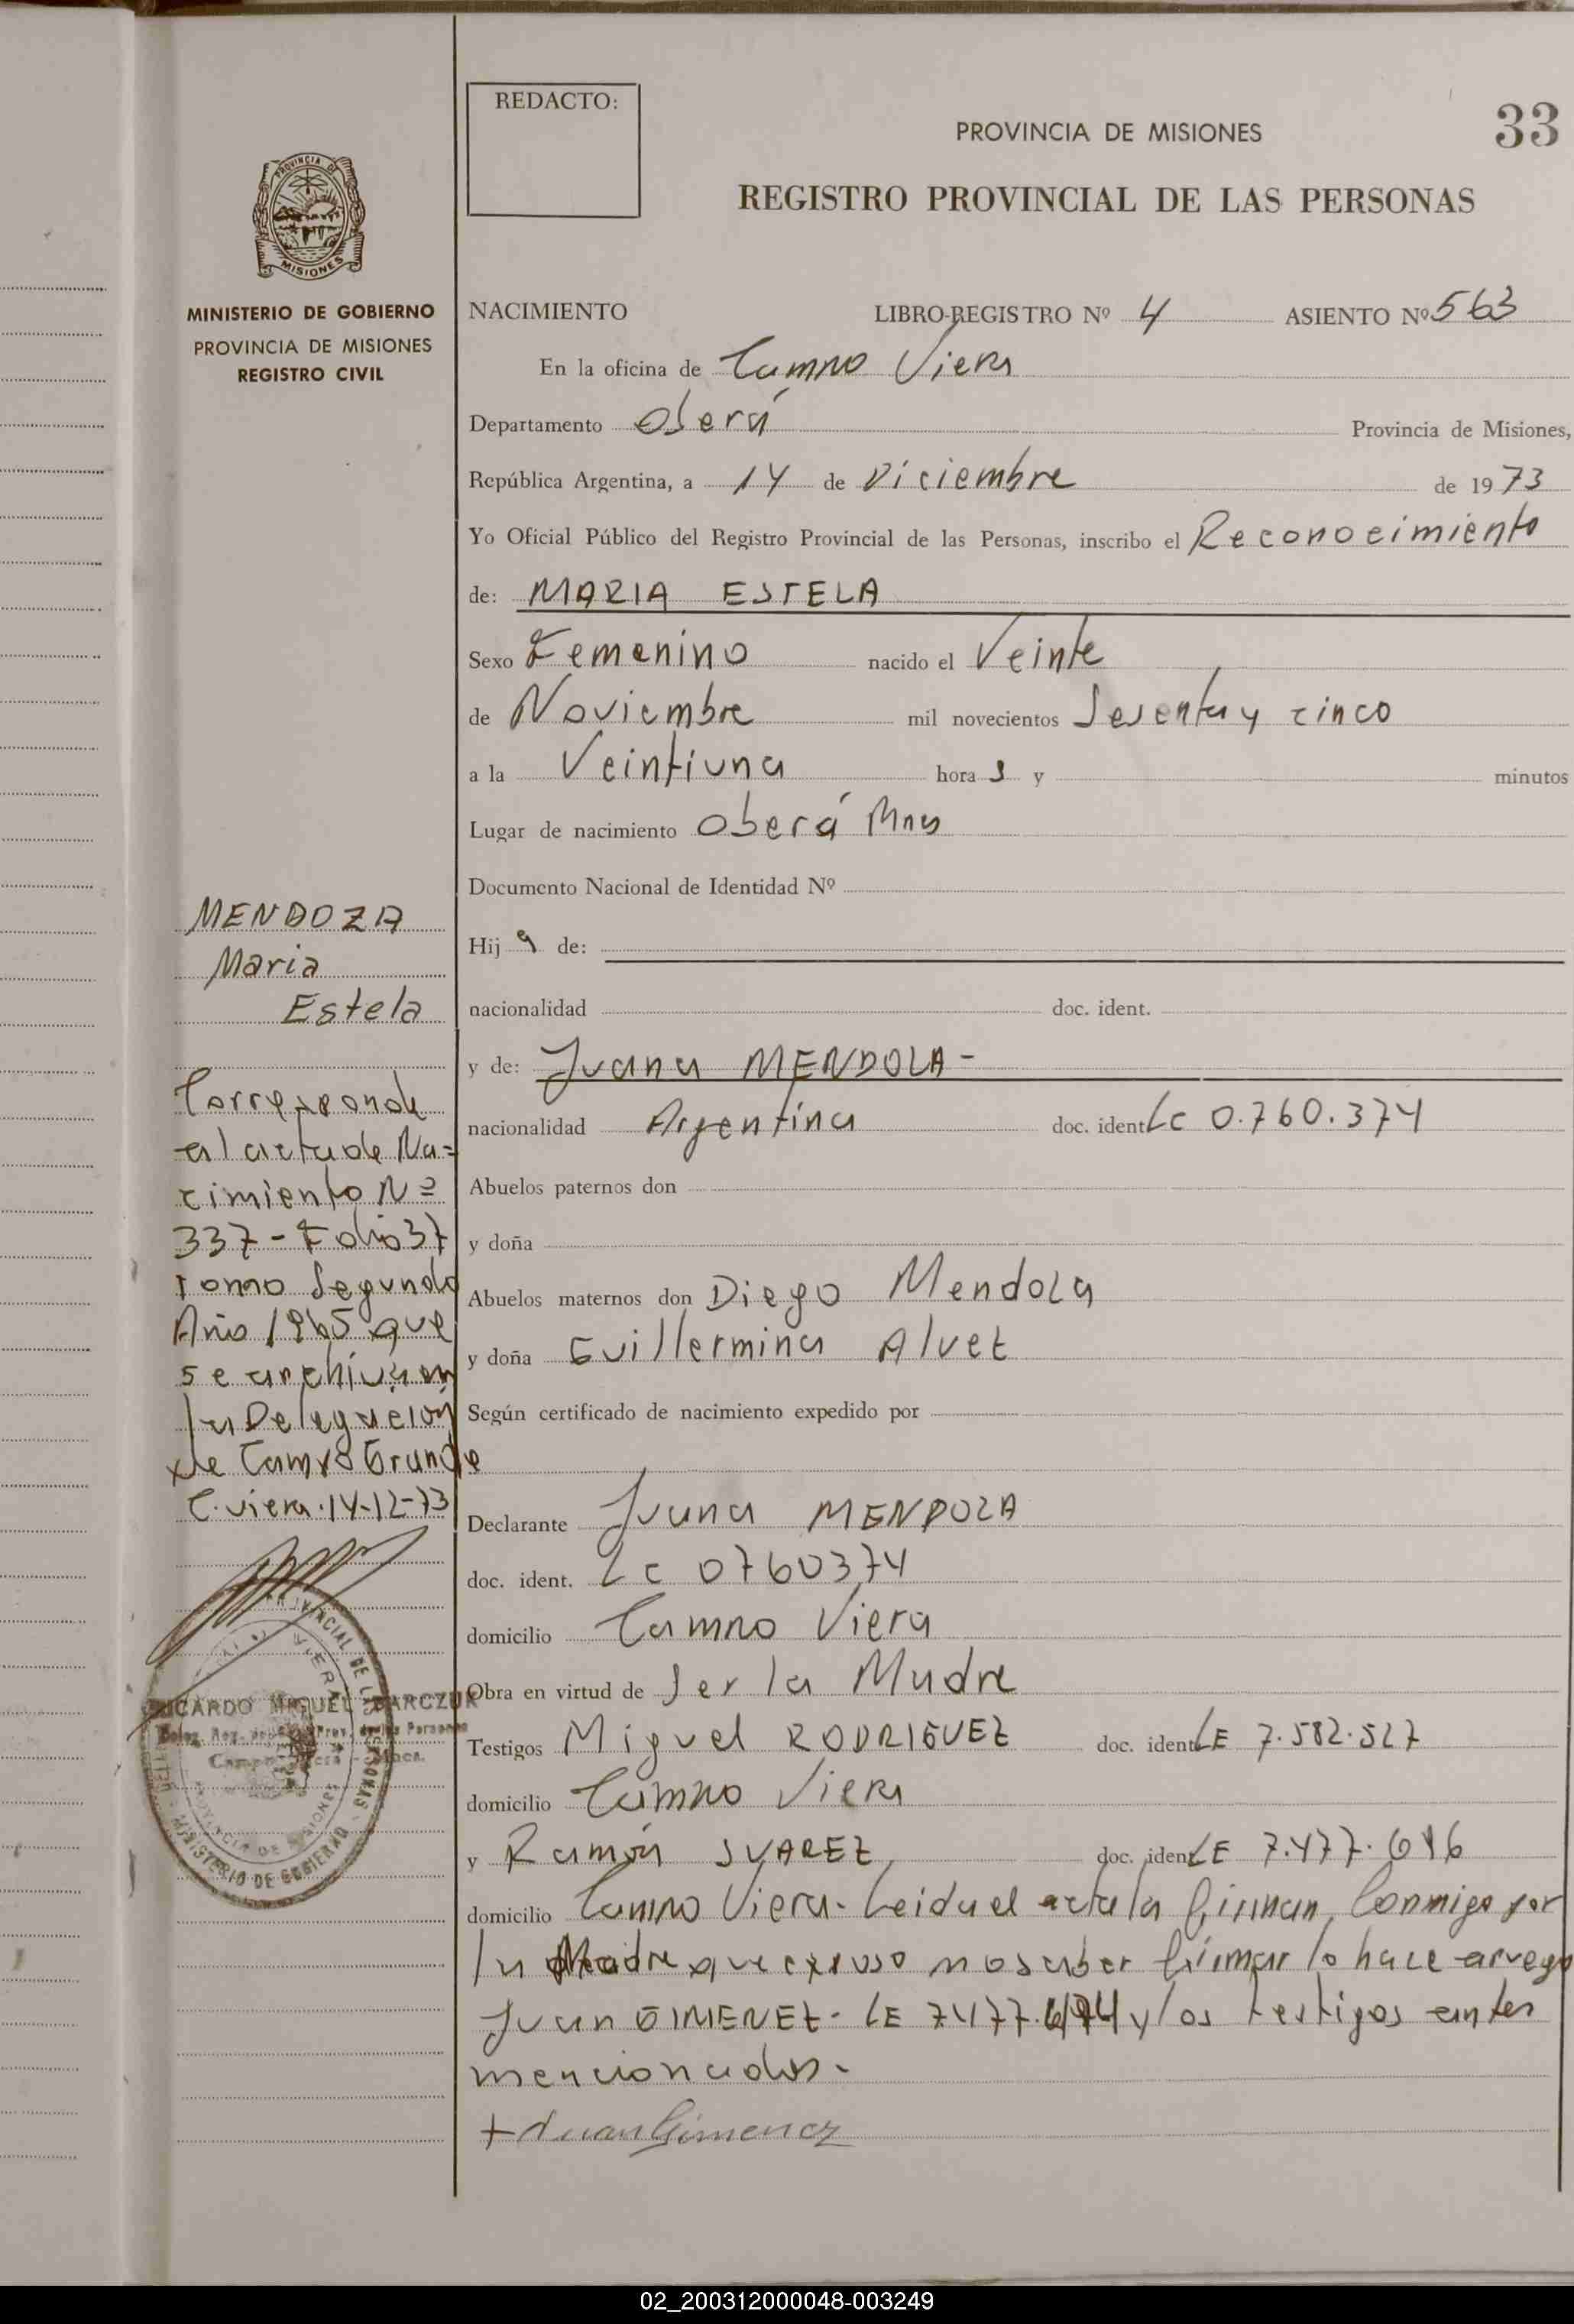 REDACTO:
PROVINCIA DE MISIONES
33
REGISTRO PROVINCIAL DE LAS PERSONAS
PROVINCIA DE
MISIONES
MINISTERIO DE GOBIERNO
PROVINCIA DE MISIONES
REGISTRO CIVIL
NACIMIENTO LIBRO-REGISTRO Nº 4 ASIENTO Nº 563
En la oficina de Campo Viera
Departamento Oberá Provincia de Misiones,
República Argentina, a 14 de Diciembre de 1973
Yo Oficial Público del Registro Provincial de las Personas, inscribo el Reconocimiento
de: MARIA ESTELA
Sexo Femenino nacido el Veinte
de Noviembre mil novecientos Sesenta y cinco
a la Veintiuna hora s y minutos
Lugar de nacimiento Oberá Mnes
Documento Nacional de Identidad Nº
Hij a de:
nacionalidad doc. ident.
y de: Juana MENDOZA-
nacionalidad Argentina doc. ident LC 0.760.374
Abuelos paternos don
y doña
Abuelos maternos don Diego Mendoza
y doña Guillermina Alvez
Según certificado de nacimiento expedido por
Declarante Juana MENDOZA
doc. ident. LC 0760374
domicilio Campo Viera
Obra en virtud de Ser la Madre
Testigos Miguel RODRIGUEZ doc. ident LE 7.582.527
domicilio Campo Viera
y Ramón SUAREZ, doc. ident LE 7.477.616
domicilio Campo Viera. Leida el acta la firman, Conmigo por
la Madre que expuso no saber firmar lo hace a ruego
Juan GIMENEZ- LE y los testigos antes
mencionados.
+ Juan Gimenez
MENDOZA
Maria
Estela
Corresponde
al acta de Na=
cimiento Nº
337 - Folio 37
Tomo Segundo
Año 1965 que
se archiva en
la Delegación
de Campo Grande
C. Viera. 14-12-73
RICARDO MIGUEL BARCZUK
Deleg. Reg. Prov. de las Personas
Campo Viera - Mnes.
PROVINCIAL DE LAS PERSONAS
MINISTERIO DE GOBIERNO
PROVINCIA DE MISIONES
02_200312000048-003249